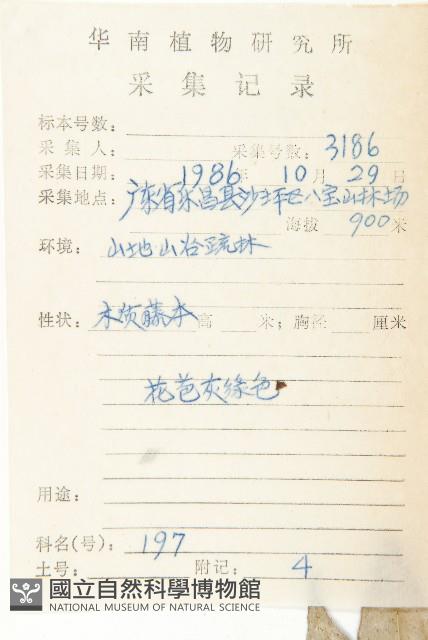 华南植物研究所
采集记录
标本号数：
采集人： 采集号数：3186
采集日期：1986年10月29日
采集地点：广东省乐昌县沙坪区八宝山林场
海拔900米
环境：山地山谷疏林
性状：木质藤本 高 米；胸径 厘米
花苞灰绿色
用途：
科名(号)：197
土号： 附记：4
國立自然科學博物館
NATIONAL MUSEUM OF NATURAL SCIENCE